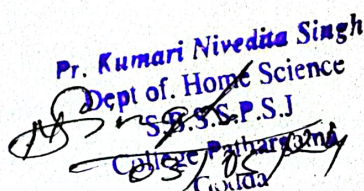 Pr. Kumari Nivedita Singh
Dept of. Home Science
S.B.S.S.P.S.J
College Pathargama
Godda